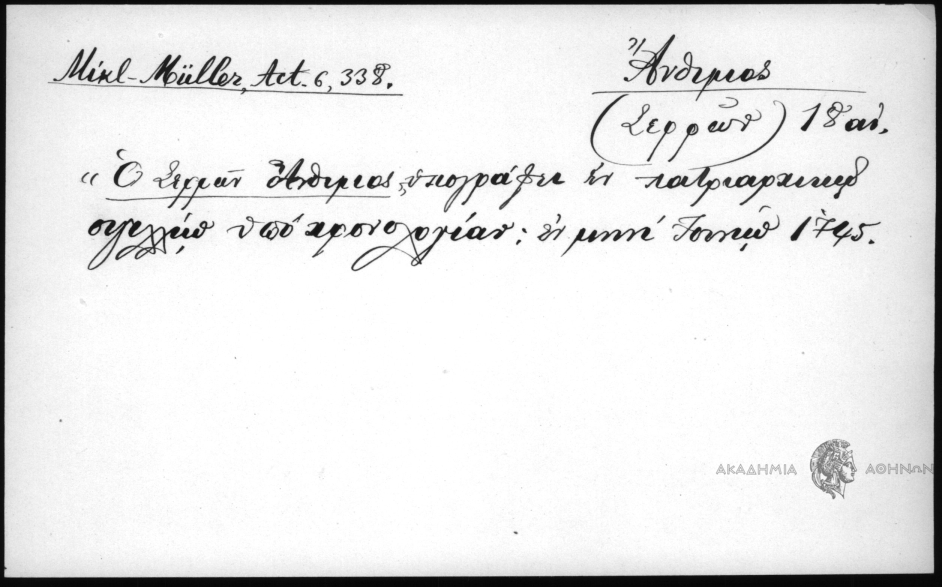 Mikl-Müller, Act. 6, 338.
Ἄνθιμος
(Σερρῶν) 18 αἰ.
"Ὁ Σερρῶν Ἄνθιμος, ὑπογράφει ἐν πατριαρχικῷ
σιγιλλίῳ ὑπό χρονολογίαν: ἐν μηνί Ἰουνίῳ 1745.
ΑΚΑΔΗΜΙΑ ΑΘΗΝΩΝ